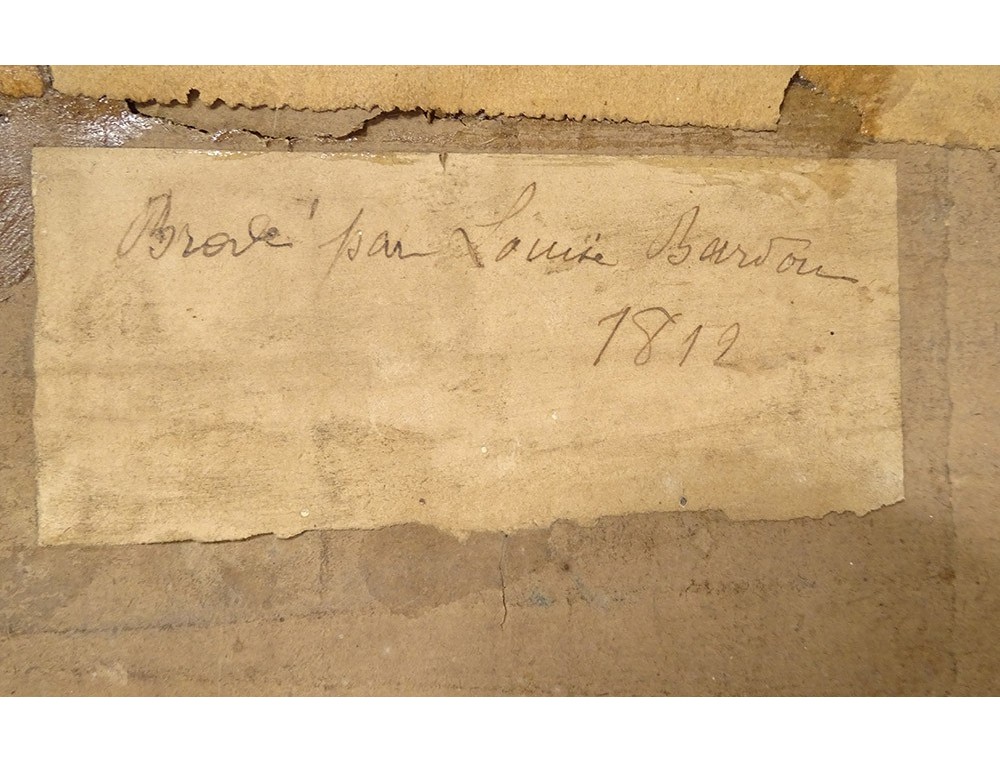 Brodé par Louise Bardou
1812